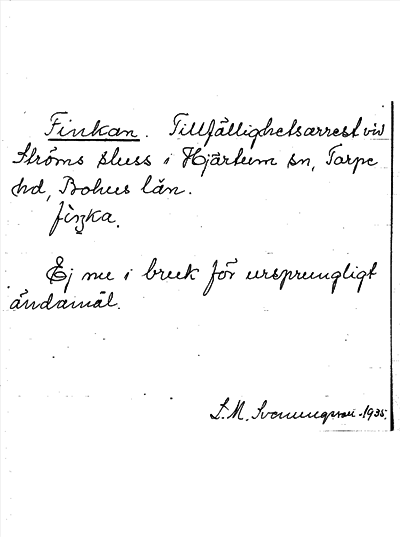 Finkan. Tillfällighetsarrest vid
Ströms sluss i Hjärtum sn, Torpe
hd, Bohus län.
fìŋka.
Ej nu i bruk för ursprungligt
ändamål.
S. M. Svenungsson -1935.